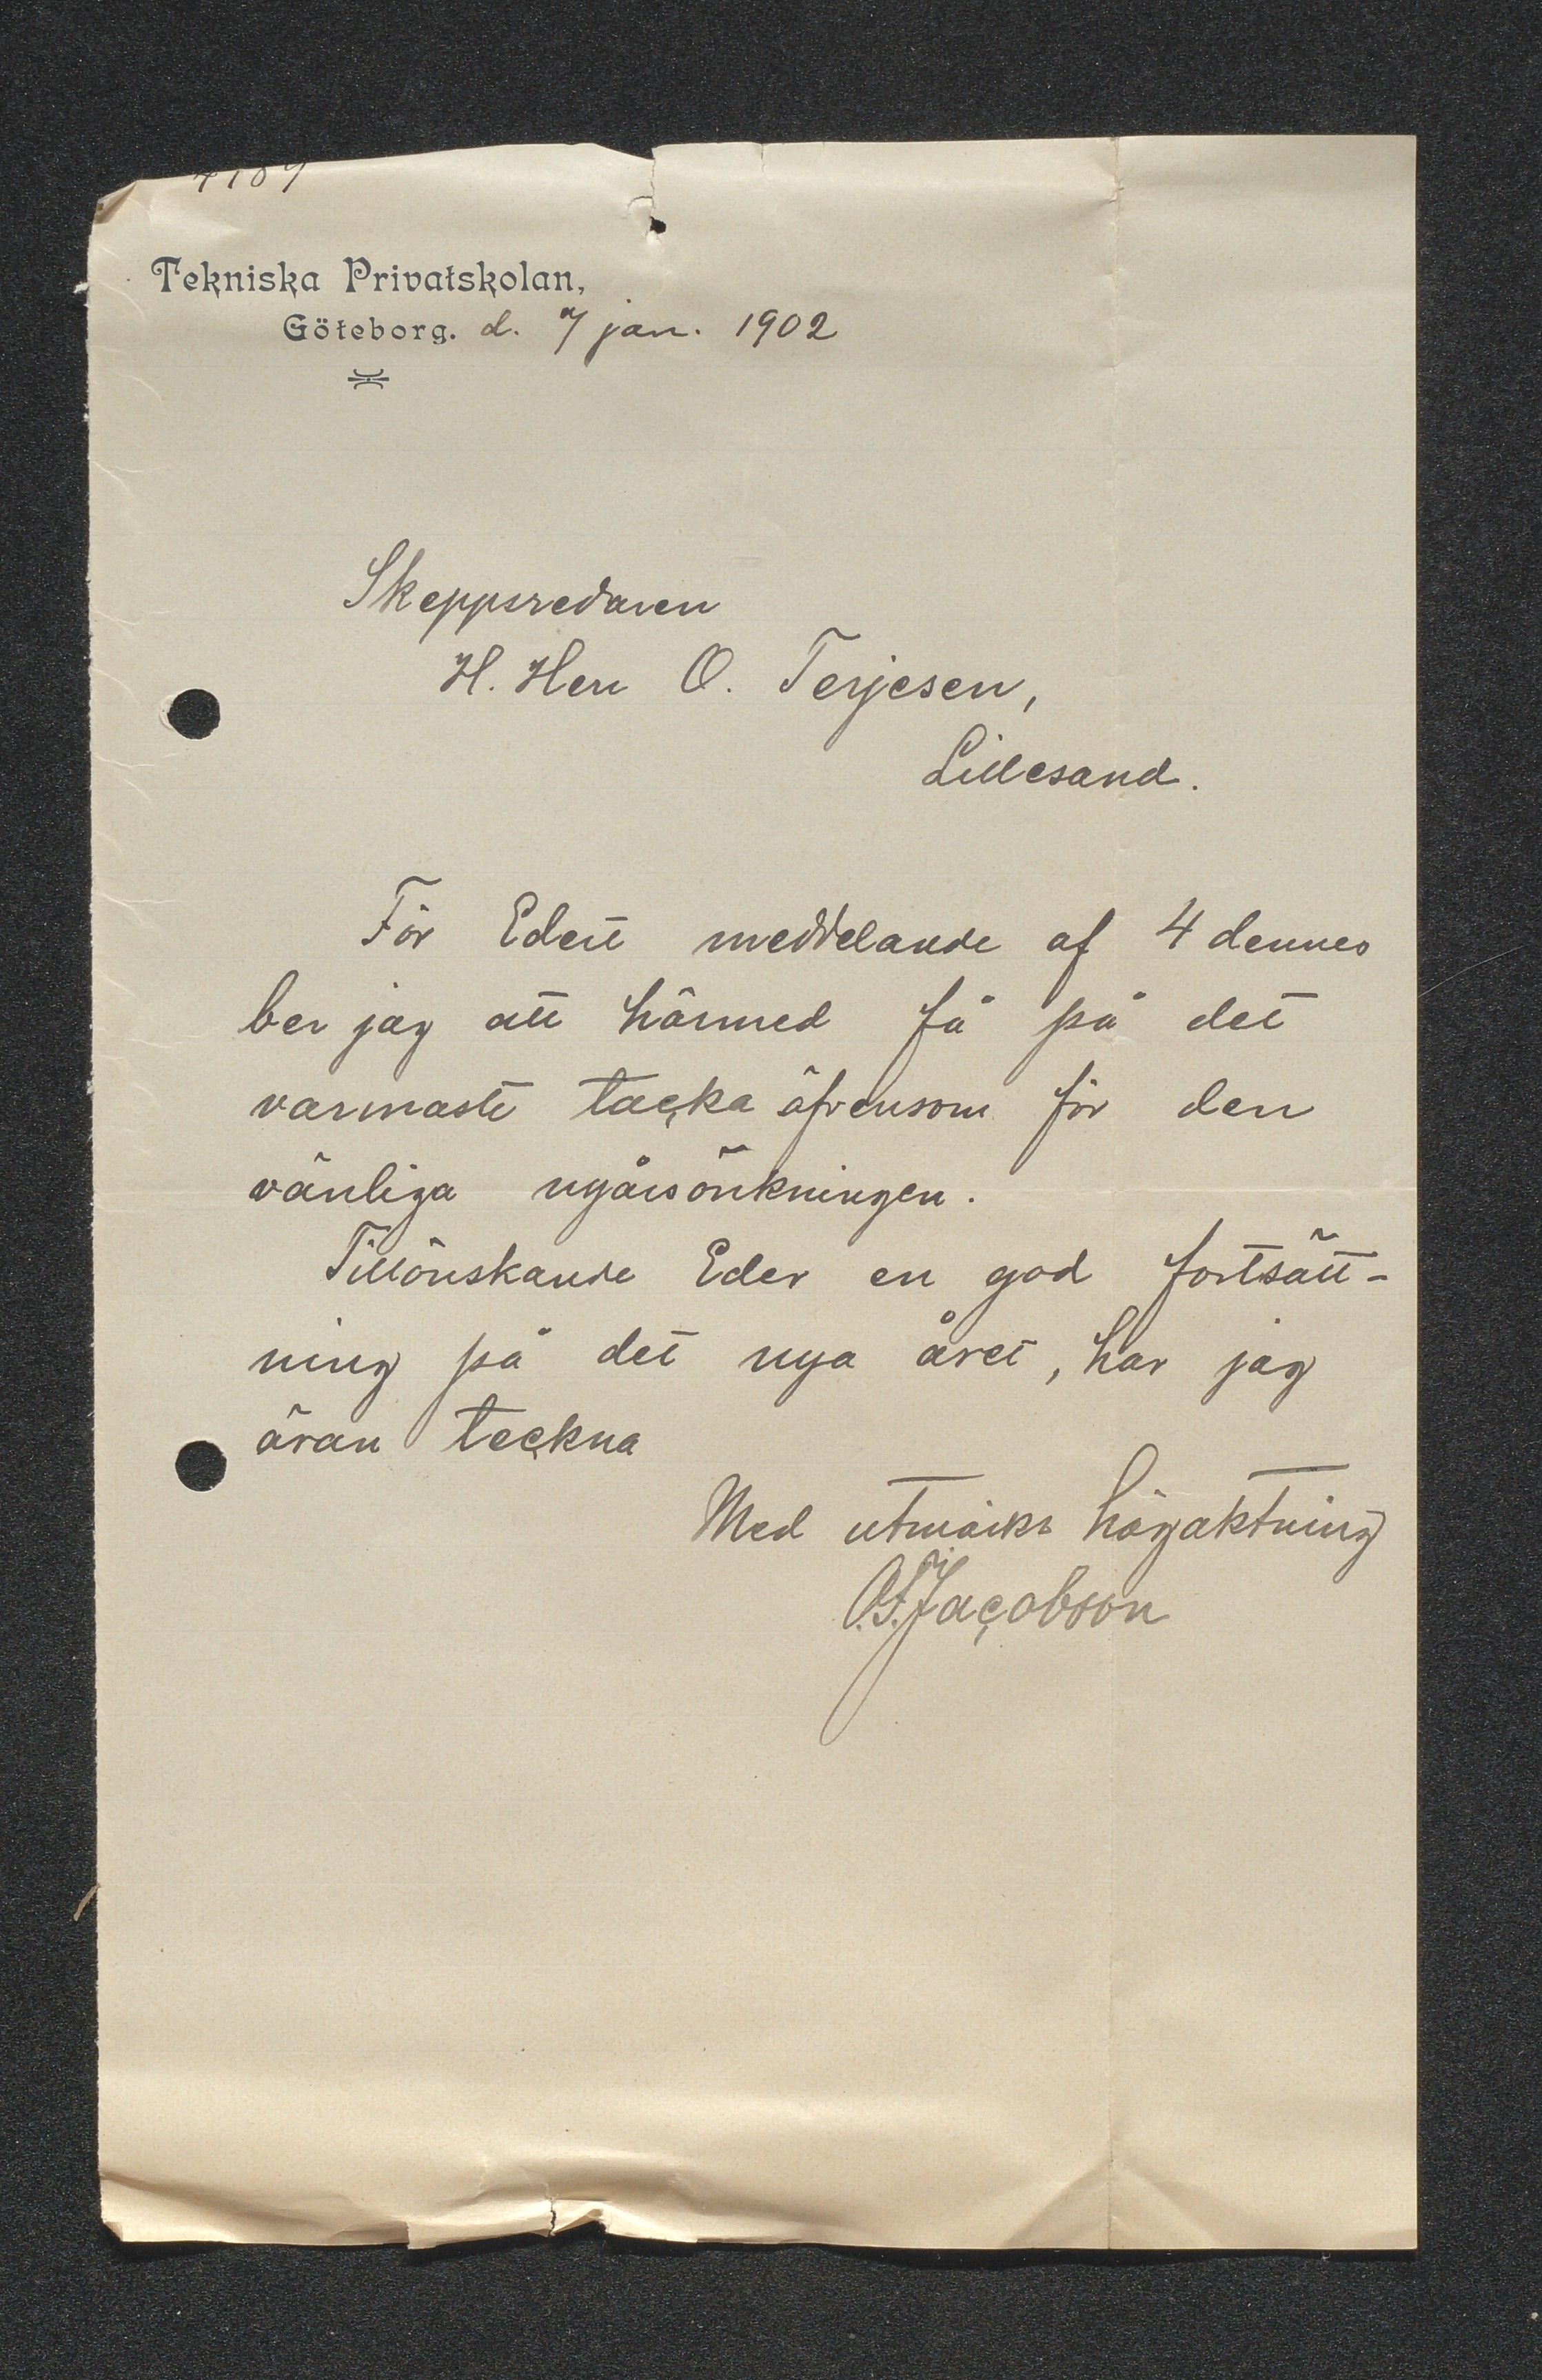 Tekniska Privatskolan,
Göteborg. d. 7 jan. 1902
Skeppsredaren
H. Herr O. Terjesen,
Lillesand.
För Edert meddelande af 4 dennes
ber jag att härmed få på det
varmaste tacka äfvensom för den
vänliga nyårsönskningen.
Tillönskande Eder en god fortsätt-
ning på det nya året, har jag
äran teckna
Med utmärkt högaktning
O.F. Jacobson